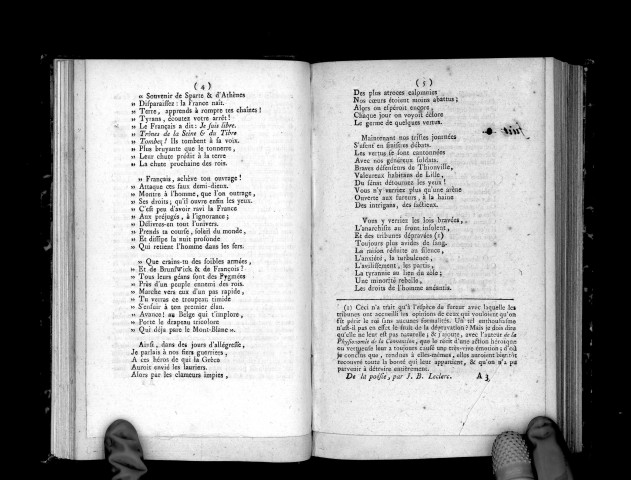 ( 4 )
« Souvenir de Sparte & d'Athènes
» Disparaissez : la France naît.
» Terre, apprends à rompre tes chaînes !
» Tyrans, écoutez votre arrêt !
» Le Français a dit : Je suis libre.
» Trônes de la Seine & du Tibre
» Tombez ! Ils tombent à sa voix.
» Plus bruyante que le tonnerre,
» Leur chute prédit à la terre
» La chute prochaine des rois.
» Français, achève ton ouvrage !
» Attaque ces faux demi-dieux.
» Montre à l'homme, que l'on outrage,
» Ses droits ; qu'il ouvre enfin les yeux.
» C'est peu d'avoir ravi la France
» Aux préjugés, à l'ignorance ;
» Délivres-en tout l'univers.
» Prends ta course, soleil du monde,
» Et dissipe la nuit profonde
» Qui retient l'homme dans les fers.
» Que crains-tu des foibles armées,
» Et de Brunswick & de François ?
» Tous leurs géans sont des Pygmées
» Près d'un peuple ennemi des rois.
» Marche vers eux d'un pas rapide,
» Tu verras ce troupeau timide
» S'enfuir à ton premier élan.
» Avance ! au Belge qui t'implore,
» Porte le drapeau tricolore
» Qui déja pare le Mont-Blanc ».
Ainsi, dans des jours d'allégresse,
Je parlais à nos fiers guerriers,
A ces héros de qui la Grèce
Auroit envié les lauriers.
Alors par les clameurs impies,
( 5 )
Des plus atroces calomnies
Nos cœurs étoient moins abattus ;
Alors on espéroit encore,
Chaque jour on voyoit éclore
Le germe de quelques vertus.
Maintenant nos tristes journées
S'usent en sinistres débats.
Les vertus se sont cantonnées
Avec nos généreux soldats.
Braves défenseurs de Thionville,
Valeureux habitans de Lille,
Du sénat détournez les yeux !
Vous n'y verriez plus qu'une arène
Ouverte aux fureurs, à la haine
Des intrigans, des factieux.
Vous y verriez les lois bravées,
L'anarchiste au front insolent,
Et des tribunes dépravées (1)
Toujours plus avides de sang,
La raison réduite au silence,
L'anxiété, la turbulence,
L'avilissement, les partis,
La tyrannie au lieu du zèle ;
Une minorité rebelle,
Les droits de l'homme anéantis.
(1) Ceci n'a trait qu'à l'espèce de fureur avec laquelle les
tribunes ont accueilli les opinions de ceux qui vouloient qu'on
fît périr le roi sans aucunes formalités. Un tel enthousiasme
n'est-il pas en effet le fruit de la dépravation ? Mais je dois dire
qu'elle ne leur est pas naturelle ; & j'ajoute, avec l'auteur de la
Physionomie de la Convention, que le récit d'une action héroïque
ou vertueuse leur a toujours causé une très-vive émotion ; d'où
je conclus que, rendues à elles-mêmes, elles auroient bientôt
recouvré toute la bonté qui leur appartient, & qu'on n'a pu
parvenir à détruire entièrement.
De la poésie, par J. B. Leclerc. A 3